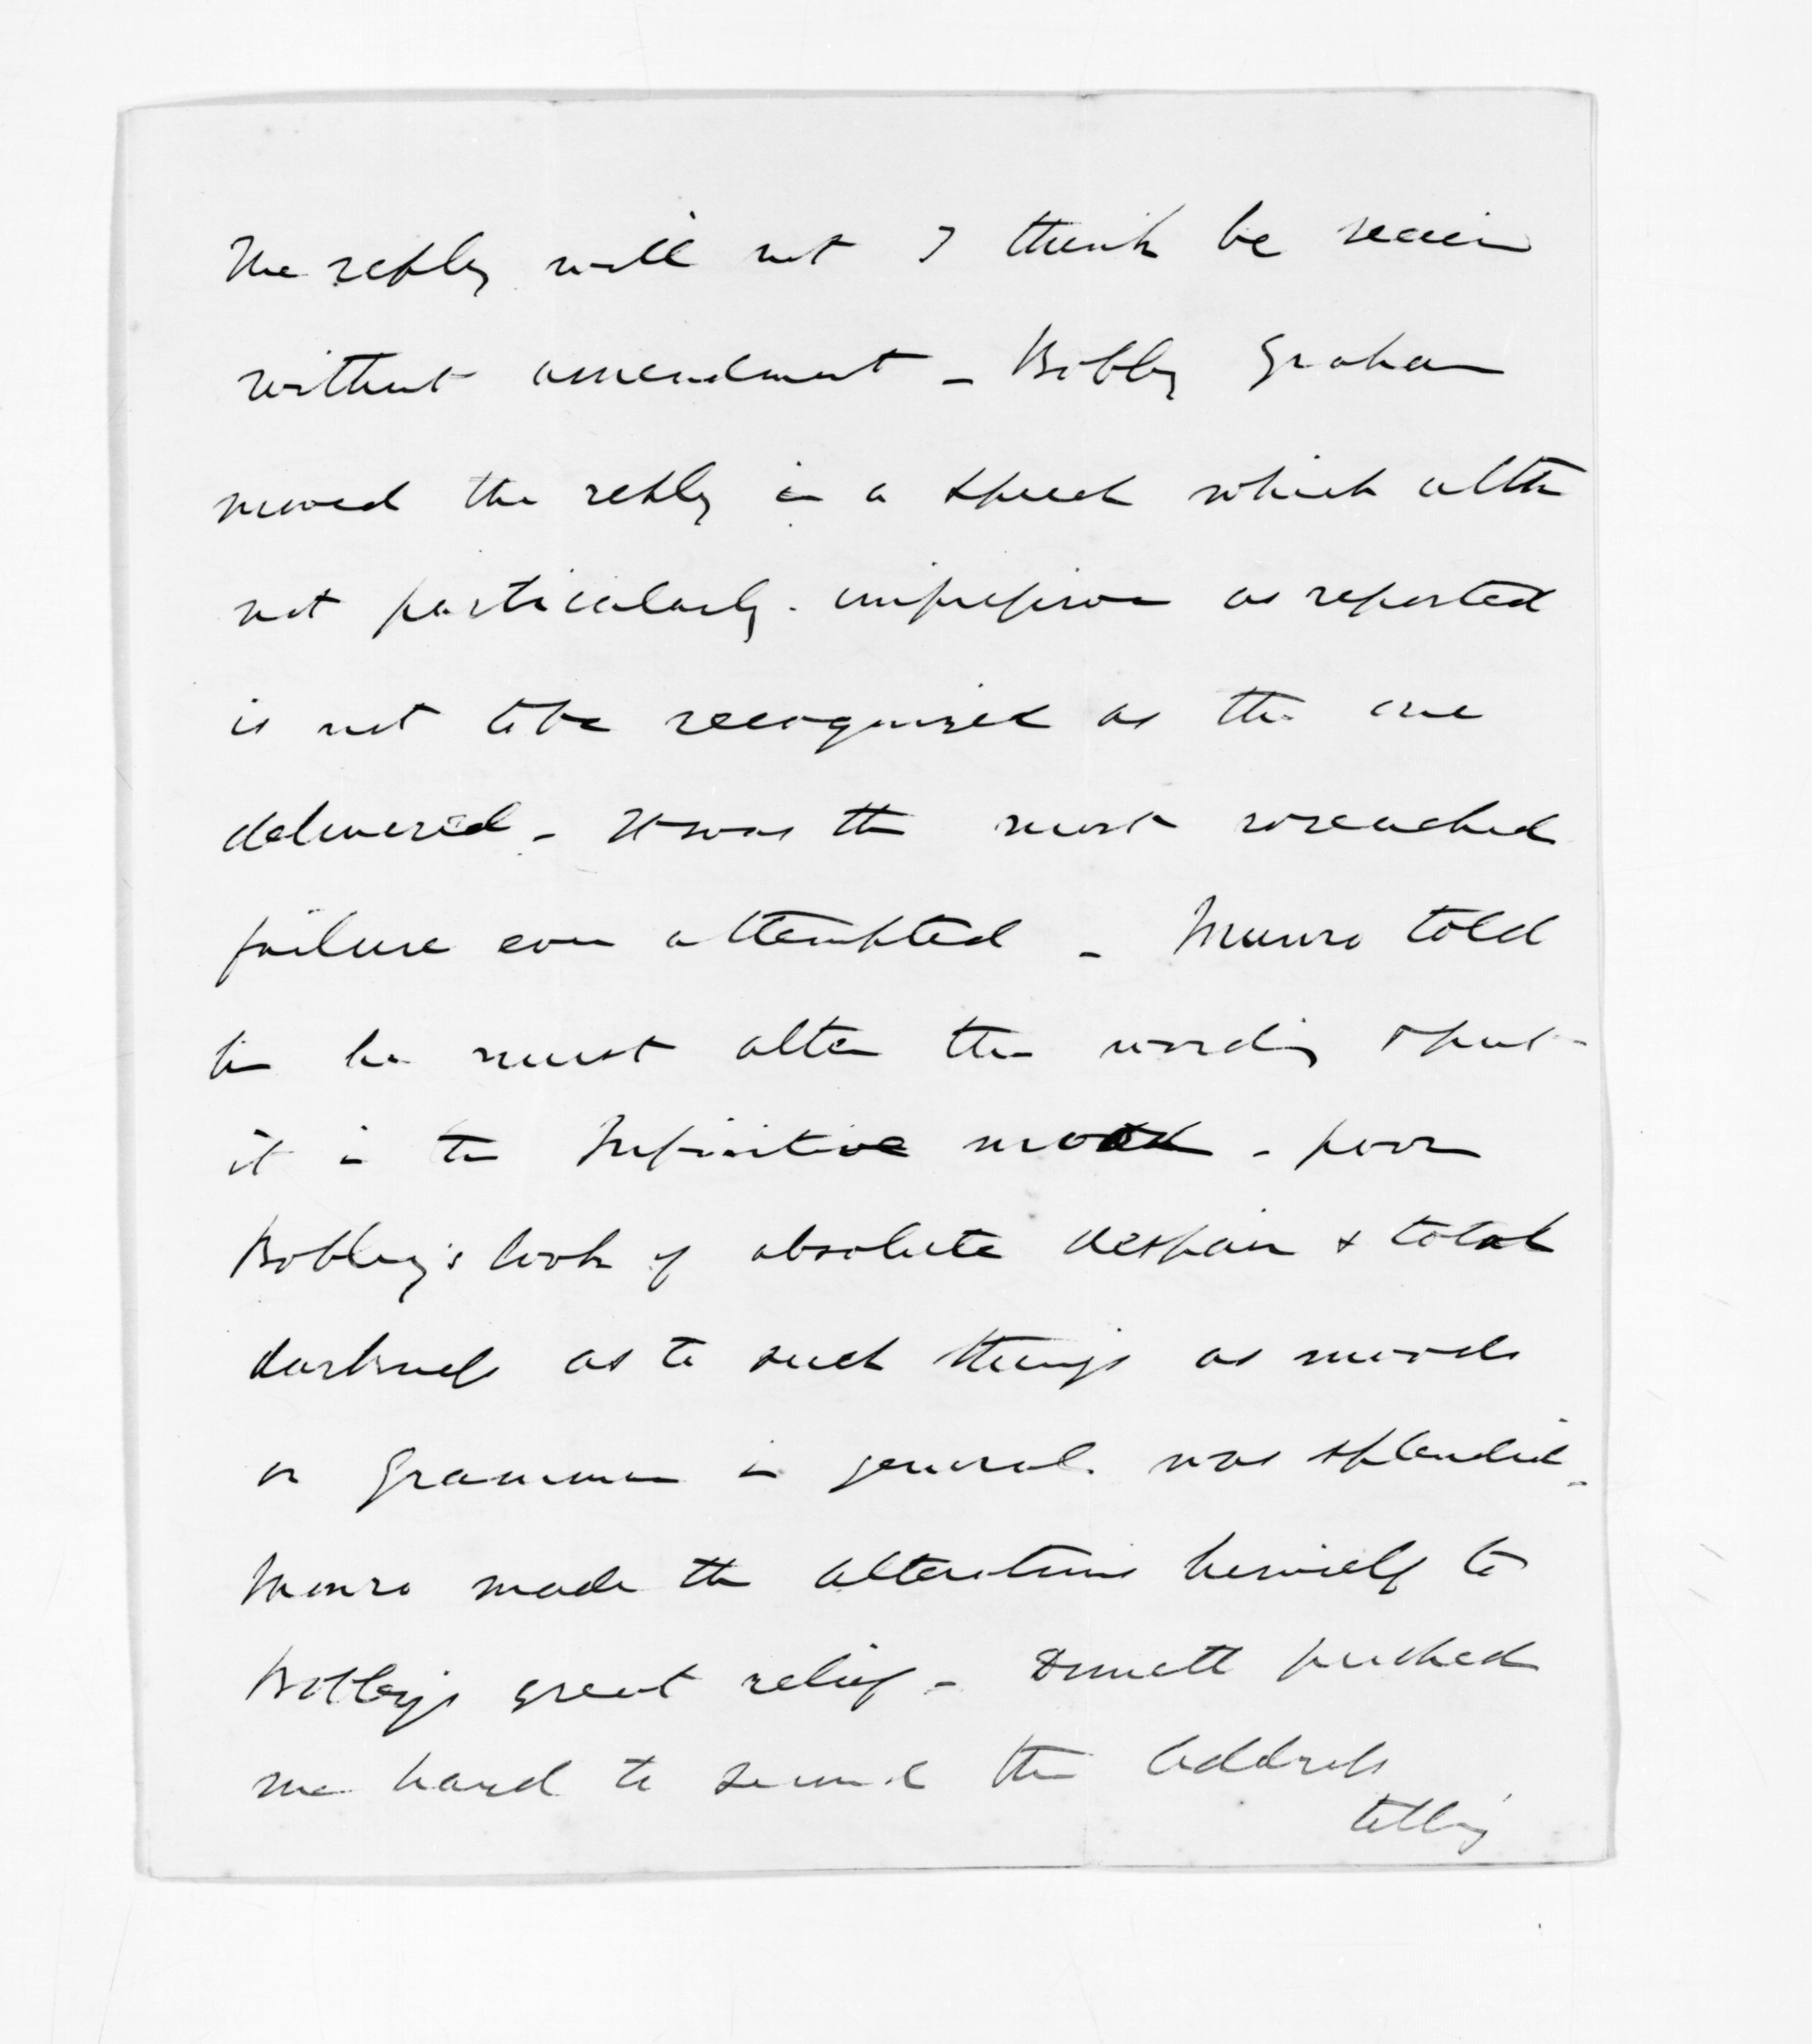 The reply will not I think be
without amendment - Bobby Graham
moved the reply in a speech which altho
not particularly impressive as reported
is not to be recognized as the one
delivered - It was the most wreached
failure ever attempted - Munro told
him he must alter the wording & put
it in the Infinitive mood - poor
Bobby's look of absolute despair & total
darkness as to such things as moods
or grammar in general was splendid -
Munro made the alterations himself to
Bobby's great relief - pushed
me hard to second the Address
telling